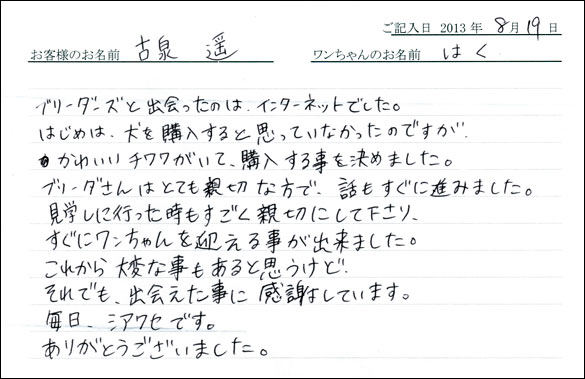 ご記入日 2013年 8月19日
お客様のお名前 古泉 遥 ワンちゃんのお名前 はく
ブリーダーズと出会ったのは、インターネットでした。
はじめは、犬を購入すると思っていなかったのですが、
かわいいチワワがいて、購入する事を決めました。
ブリーダさんはとても親切な方で、話もすぐに進みました。
見学しに行った時もすごく親切にして下さり、
すぐにワンちゃんを迎える事が出来ました。
これから大変な事もあると思うけど、
それでも、出会えた事に感謝しています。
毎日、シアワセです。
ありがとうございました。